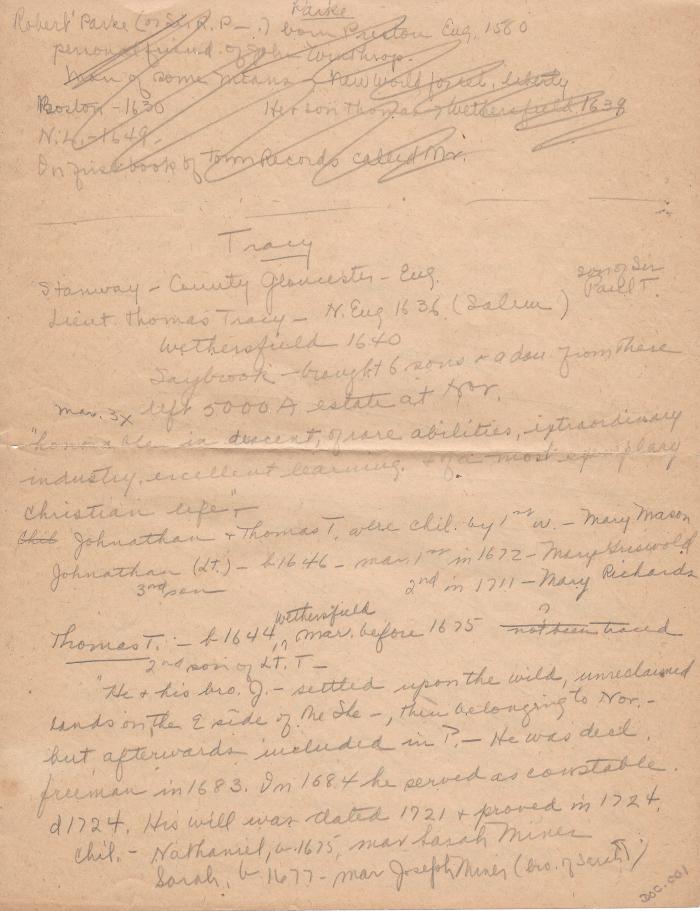 Parke
Robert Parke (or Sir R. P-.) born Preston Eng. 1580
personal friend of John Winthrop.
Man of some means & New World for rel. liberty
Boston - 1630 Her son Thomas Wethersfield 1639
N.L. - 1649.
In first book of Town Records called Mr.
Tracy
Stanway - County Gloucester - Eng.
son of Sir
Paul T.
Lieut. Thomas Tracy - N. Eng 1636 (Salem)
Wethersfield 1640
Saybrook - brought 6 sons & a dau from there
left 5000 A estate at Nor.
mar. 3x
"honorable in descent, of rare abilities, extraordinary
industry, excellent learning. & of a most exemplary
christian life" -
Chil Johnathan & Thomas T. were chil. by 1st w. - Mary Mason
Johnathan (Lt.) - b 1646 - mar. 1st in 1672 - Mary Griswold
3rd son 2nd in 1711 - Mary Richards
Wethersfield ?
Thomas T. - b 1644, mar. before 1675 not been traced
2nd son of Lt. T -
"He & his bro. J. - settled upon the wild, unreclaimed
lands on the E side of the She -, then belonging to Nor. -
but afterwards included in P. - He was decl.
freeman in 1683. In 1684 he served as constable.
d 1724. His will was dated 1721 & proved in 1724.
Chil. - Nathaniel, b. 1675, mar Sarah Miner
Sarah, b 1677 - mar Joseph Miner (bro. of Sarah)
DOC. 001